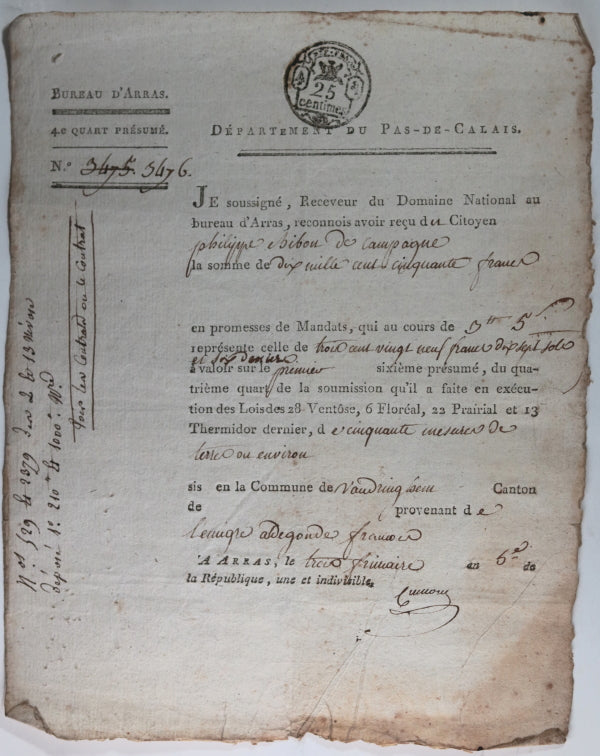 25
centimes
BUREAU D'ARRAS.
4.e QUART PRÉSUMÉ.
N.º 3475. 3476.
DÉPARTEMENT DU PAS-DE-CALAIS.
JE soussigné, Receveur du Domaine National au
bureau d'Arras, reconnois avoir reçu du Citoyen
philippe de campagne
la somme de dix mille cent cinquante francs
en promesses de Mandats, qui au cours de 5.
représente celle de trois cent vingt neuf francs dix sept sols
et six deniers
à valoir sur le premier sixième présumé, du qua-
trième quart de la soumission qu'il a faite en exécu-
tion des Lois des 28 Ventôse, 6 Floréal, 22 Prairial et 13
Thermidor dernier, d e cinquante mesures de
terre ou environ
sis en la Commune de Canton
de provenant de
l'emigré adegonde francois
A ARRAS, le trois frimaire an de
la République, une et indivisible.
tous les Contrats ou le Contrat
N.os 529 & 2379 du 2
déposé 210 & 1000